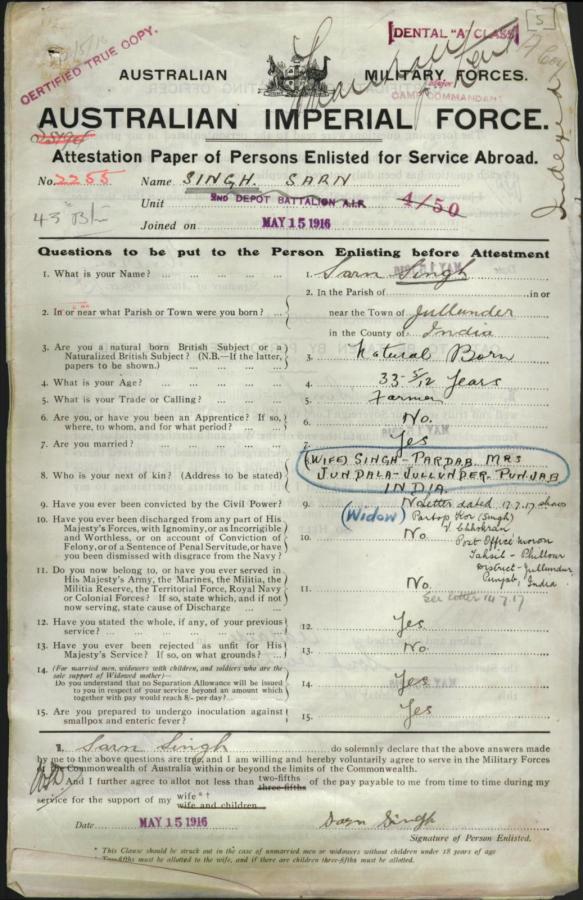 [5]
DENTAL "A" CLASS
CERTIFIED TRUE COPY.
AUSTRALIAN MILITARY FORCES.
CAMP COMMANDANT
AUSTRALIAN IMPERIAL FORCE.
Attestation Paper of Persons Enlisted for Service Abroad.
No. 2255 Name SINGH. SARN
Unit 2ND DEPOT BATTALION A.I.F. 4/50
43rd Btn
Joined on MAY 15 1916
Indexed
Questions to be put to the Person Enlisting before Attestment
1. What is your Name? ... 1. Sarn Singh
2. In or near what Parish or Town were you born? ... 2. In the Parish of in or
near the Town of Jullunder
in the County of India
3. Are you a natural born British Subject or a
Naturalized British Subject? (N.B.—If the latter,
papers to be shown.) 3. Natural Born
4. What is your Age? ... 4. 33 5/12 Years
5. What is your Trade or Calling? ... 5. Farmer
6. Are you, or have you been an Apprentice? If so,
where, to whom, and for what period? ... 6. No.
7. Are you married? ... 7. Yes
8. Who is your next of kin? (Address to be stated) 8. (WIFE) SINGH-PARDAB. MRS
JUNDALA-JULLUNDER-PUNJAB
INDIA.
9. Have you ever been convicted by the Civil Power? 9. No
letter dated 17.7.17 shows
(Widow) Partap Kor (Singh)
V. Chhokran
Post Office
Tahsil - Phillour
District - Jullundur
Punjab, India
10. Have you ever been discharged from any part of His
Majesty's Forces, with Ignominy, or as Incorrigible
and Worthless, or on account of Conviction of
Felony, or of a Sentence of Penal Servitude, or have
you been dismissed with disgrace from the Navy? 10. No.
11. Do you now belong to, or have you ever served in
His Majesty's Army, the Marines, the Militia, the
Militia Reserve, the Territorial Force, Royal Navy
or Colonial Forces? If so, state which, and if not
now serving, state cause of Discharge ... 11. No.
See letter 17.7.17
12. Have you stated the whole, if any, of your previous
service? ... 12. Yes
13. Have you ever been rejected as unfit for His
Majesty's Service? If so, on what grounds? ... 13. No.
14. (For married men, widowers with children, and soldiers who are the
sole support of Widowed mother)—
Do you understand that no Separation Allowance will be issued
to you in respect of your service beyond an amount which
together with pay would reach 8/- per day? ... 14. Yes
15. Are you prepared to undergo inoculation against
smallpox and enteric fever? 15. Yes
I, Sarn Singh do solemnly declare that the above answers made
by me to the above questions are true, and I am willing and hereby voluntarily agree to serve in the Military Forces
of the Commonwealth of Australia within or beyond the limits of the Commonwealth.
And I further agree to allot not less than two-fifths three-fifths of the pay payable to me from time to time during my
service for the support of my wife*† wife and children
Date MAY 15 1916 Sarn Singh
Signature of Person Enlisted.
* This Clause should be struck out in the case of unmarried men or widowers without children under 18 years of age
† Two-fifths must be allotted to the wife, and if there are children three-fifths must be allotted.